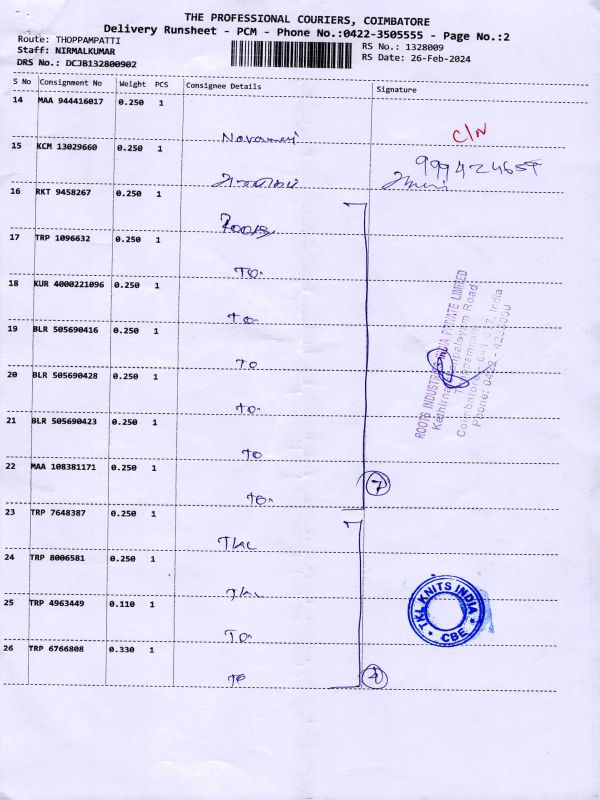 THE PROFESSIONAL COURIERS, COIMBATORE
Delivery Runsheet - PCM - Phone No.:0422-3505555 - Page No.:2
Route: THOPPAMPATTI
Staff: NIRMALKUMAR
DRS No.: DCJB132800902
RS No.: 1328009
RS Date: 26-Feb-2024
S No Consignment No Weight PCS Consignee Details Signature
14 MAA 944416017 0.250 1
C/N
15 KCM 13029660 0.250 1
9994424659
16 RKT 9458267 0.250 1
Roots
17 TRP 1096632 0.250 1
To
18 KUR 4000221096 0.250 1
To
19 BLR 505690416 0.250 1
To
20 BLR 505690428 0.250 1
To
21 BLR 505690423 0.250 1
To
22 MAA 108381171 0.250 1
To
7
ROOTS INDUSTRIES INDIA PRIVATE LIMITED
23 TRP 7648387 0.250 1
TKL
24 TRP 8006581 0.250 1
25 TRP 4963449 0.110 1
To
26 TRP 6766808 0.330 1
To
4
TKL KNITS INDIA
CBE